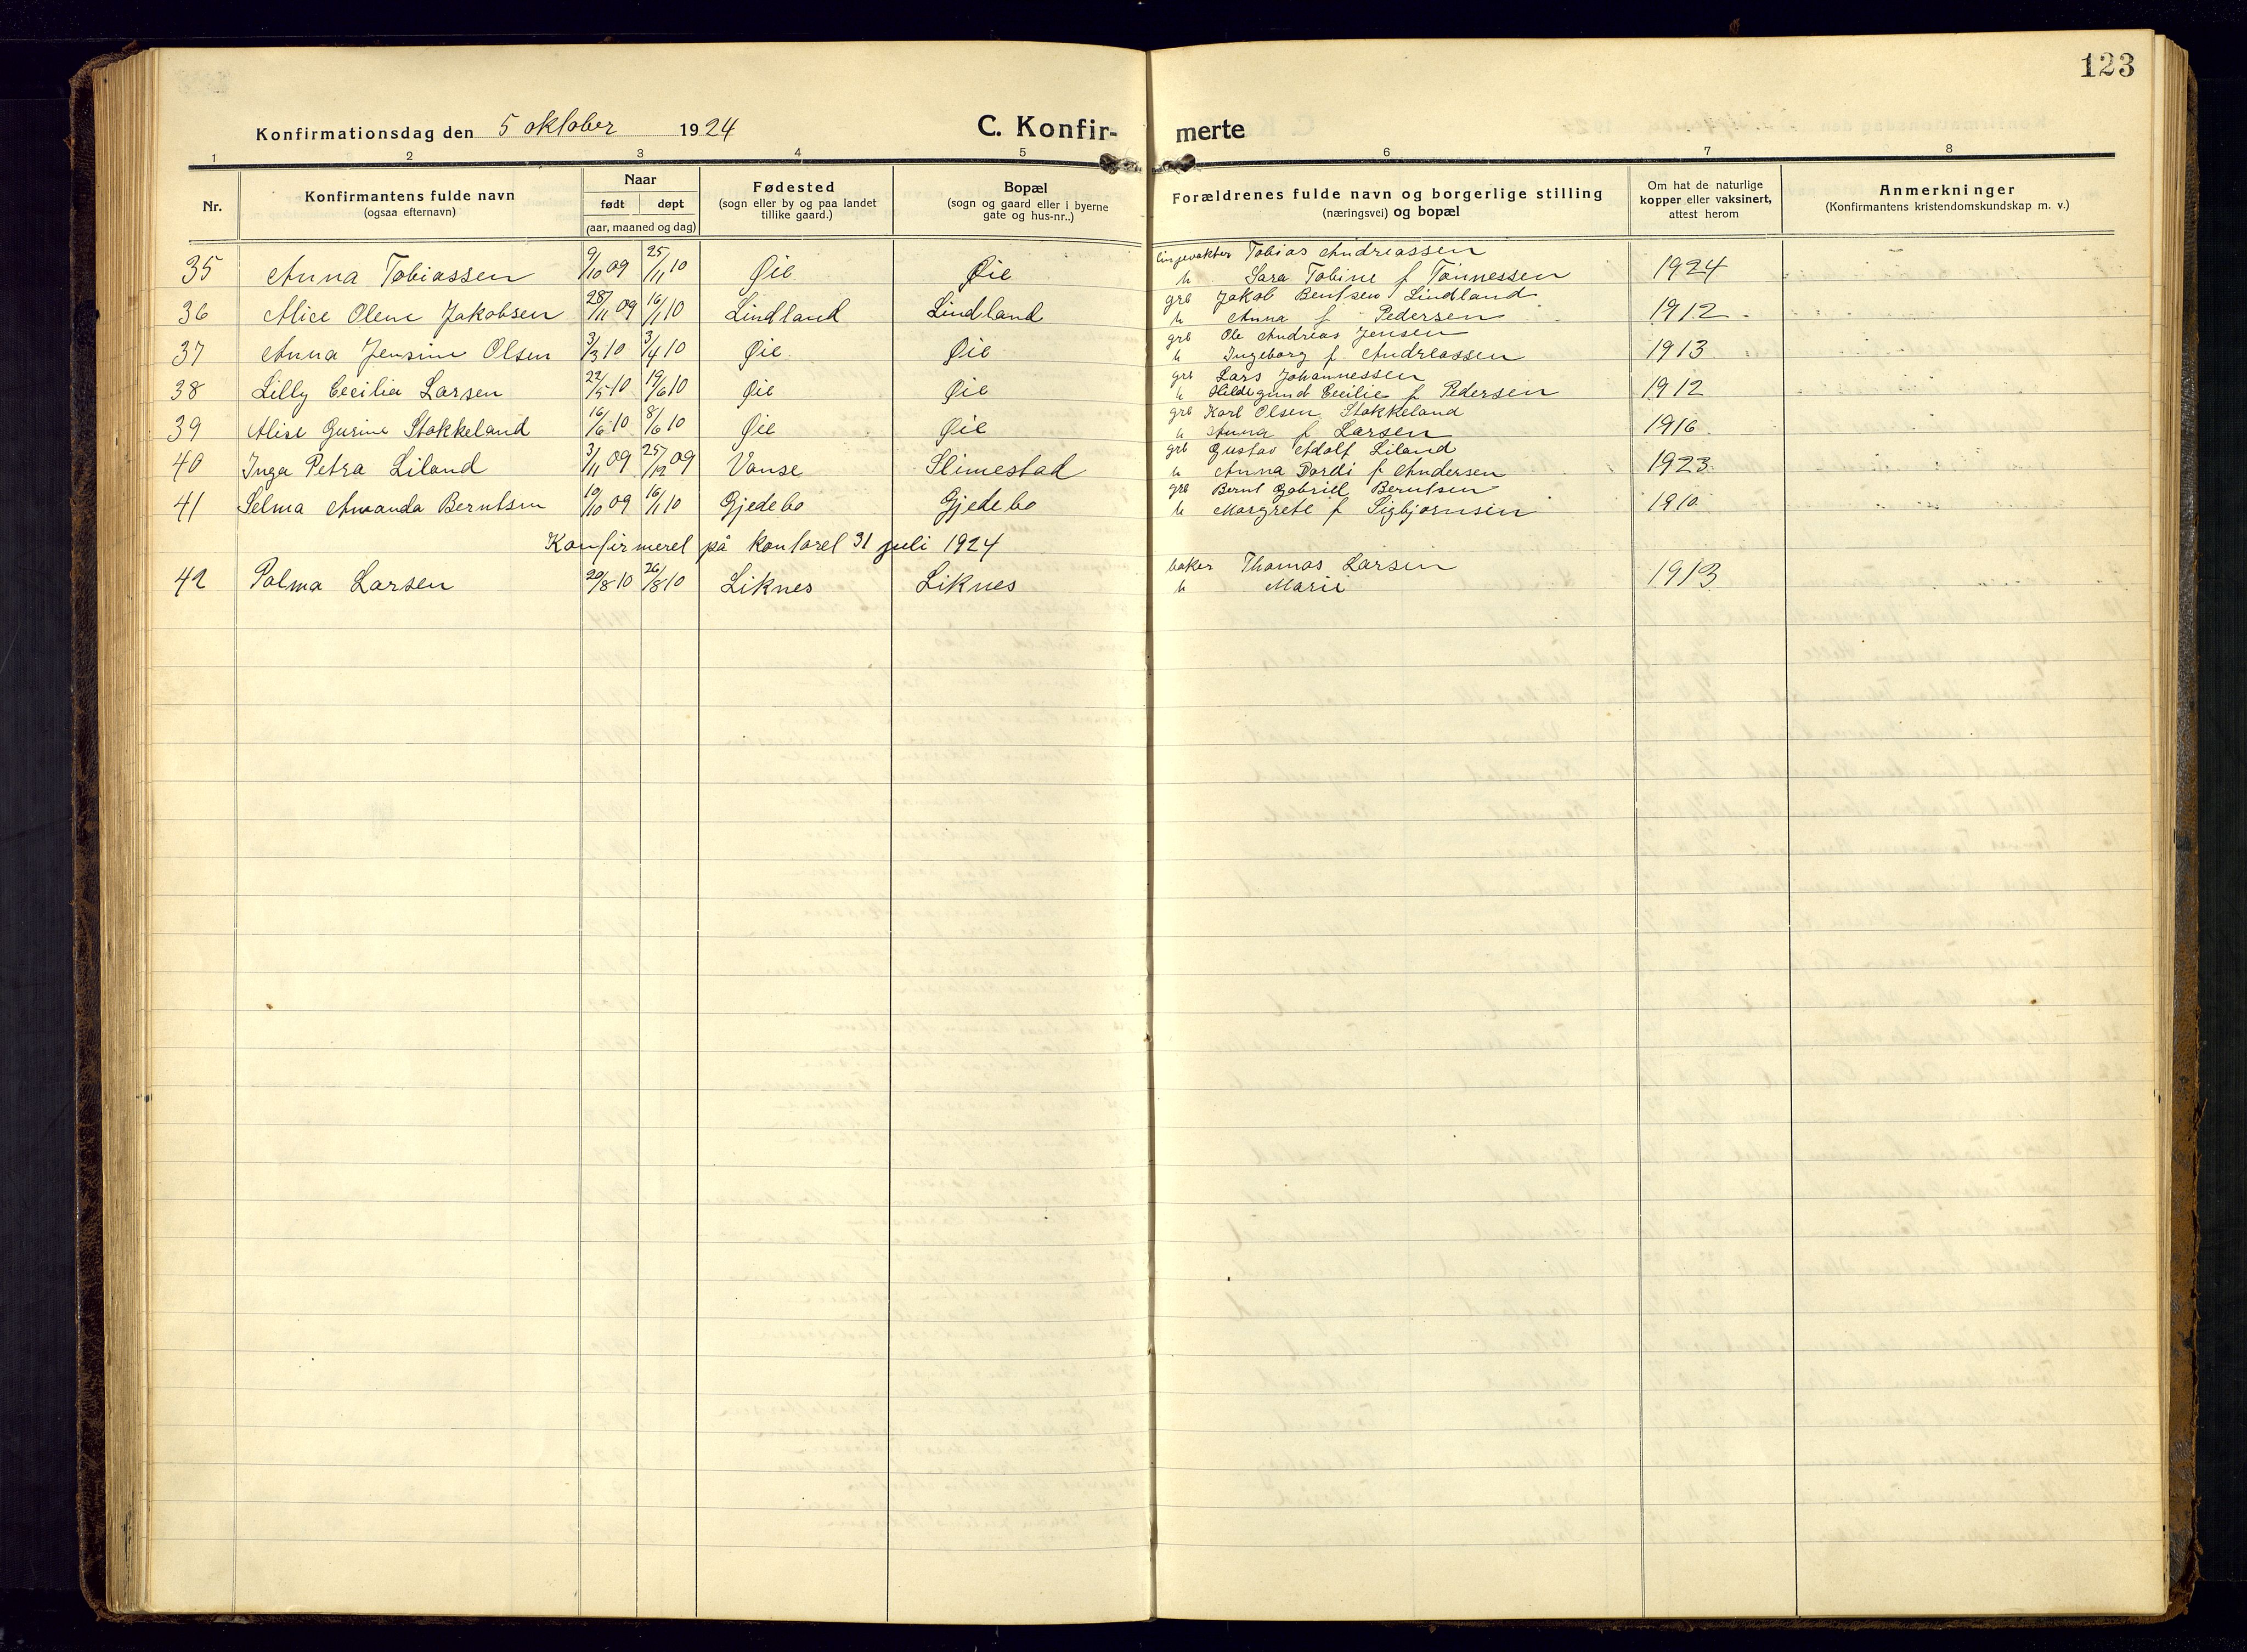 123
Konfirmationsdag den 5 oktober 1924
C. Konfir-
merte
1 2 3 4 5 6 7 8
Nr.
Konfirmantens fulde navn
(ogsaa efternavn)
Naar
født døpt
(aar, maaned og dag)
Fødested
(sogn eller by og paa landet
tillike gaard.)
Bopæl
(sogn og gaard eller i byerne
gate og hus-nr..)
Forældrenes fulde navn og borgerlige stilling
(næringsvei) og bopæl
Om hat de naturlige
kopper eller vaksinert,
attest herom
Anmerkninger
(Konfirmantens kristendomskundskap m. v.)
35 Anna Tobiassen 9/10 09 25/11 10 Øie Øie linjevokter Tobias Andreassen
h Sara Tobine f Tønnessen 1924
36 Alice Olene Jakobsen 28/11 09 16/1 10 Lindland Lindland grb Jakob Bentsen Lindland
h Anna f Pedersen 1912
37 Anna Jensine Olsen 3/3 10 3/4 10 Øie Øie grb Ole Andreas Jensen
h Ingeborg f Andreassen 1913
38 Lilly Cecilia Larsen 22/5 10 19/6 10 Øie Øie grb Lars Johannessen
h Hildegund Cecilie f Pedersen 1912
39 Alise Gurine Stokkeland 16/6 10 8/6 10 Øie Øie grb Karl Olsen Stokkeland
h Anna f Larsen 1916
40 Inga Petra Liland 3/11 09 25/12 09 Vanse Slimestad grb Gustav Adolf Liland
h Anna Dordi f Andersen 1923
41 Selma Amanda Berntsen 19/10 09 16/1 10 Gjedebo Gjedebo grb Bernt Gabriel Berntsen
h Margrete f Sigbjørnsen 1910
Konfirmeret på kontoret 31 juli 1924
42 Palma Larsen 20/8 10 26/8 10 Liknes Liknes baker Thomas Larsen
h Marie 1913